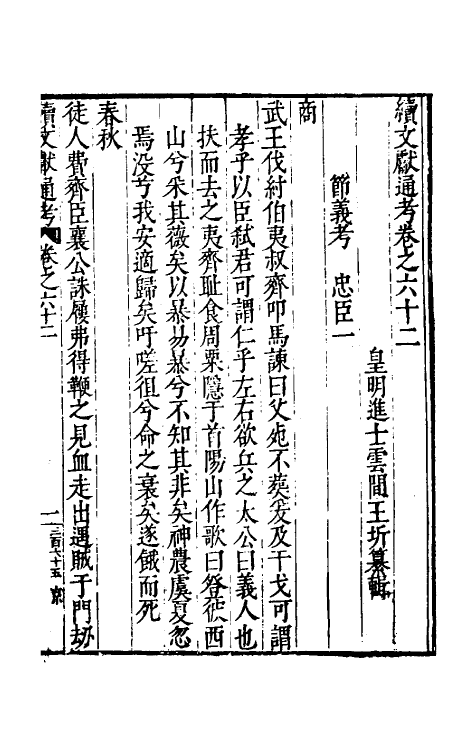 續文獻通考卷之六十二
皇明進士雲間王圻纂輯
節義考　忠臣一
商
武王伐紂伯夷叔齊叩馬諫曰父死不葬爰及干戈可謂
孝乎以臣弑君可謂仁乎左右欲兵之太公曰義人也
扶而去之夷齊耻食周粟隱于首陽山作歌曰登彼西
山兮采其薇矣以暴易暴兮不知其非矣神農虞夏忽
焉没兮我安適歸矣吁嗟徂兮命之衰矣遂餓而死
春秋
徒人費齊臣襄公誅屨弗得鞭之見血走出遇賊于門劫
續文獻通考 卷之六十二